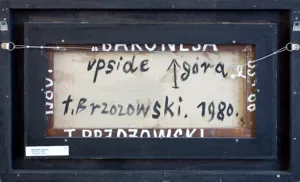 "BARONESA
upside ↑ góra
T. Brzozowski. 1980.
T. BRZOZOWSKI